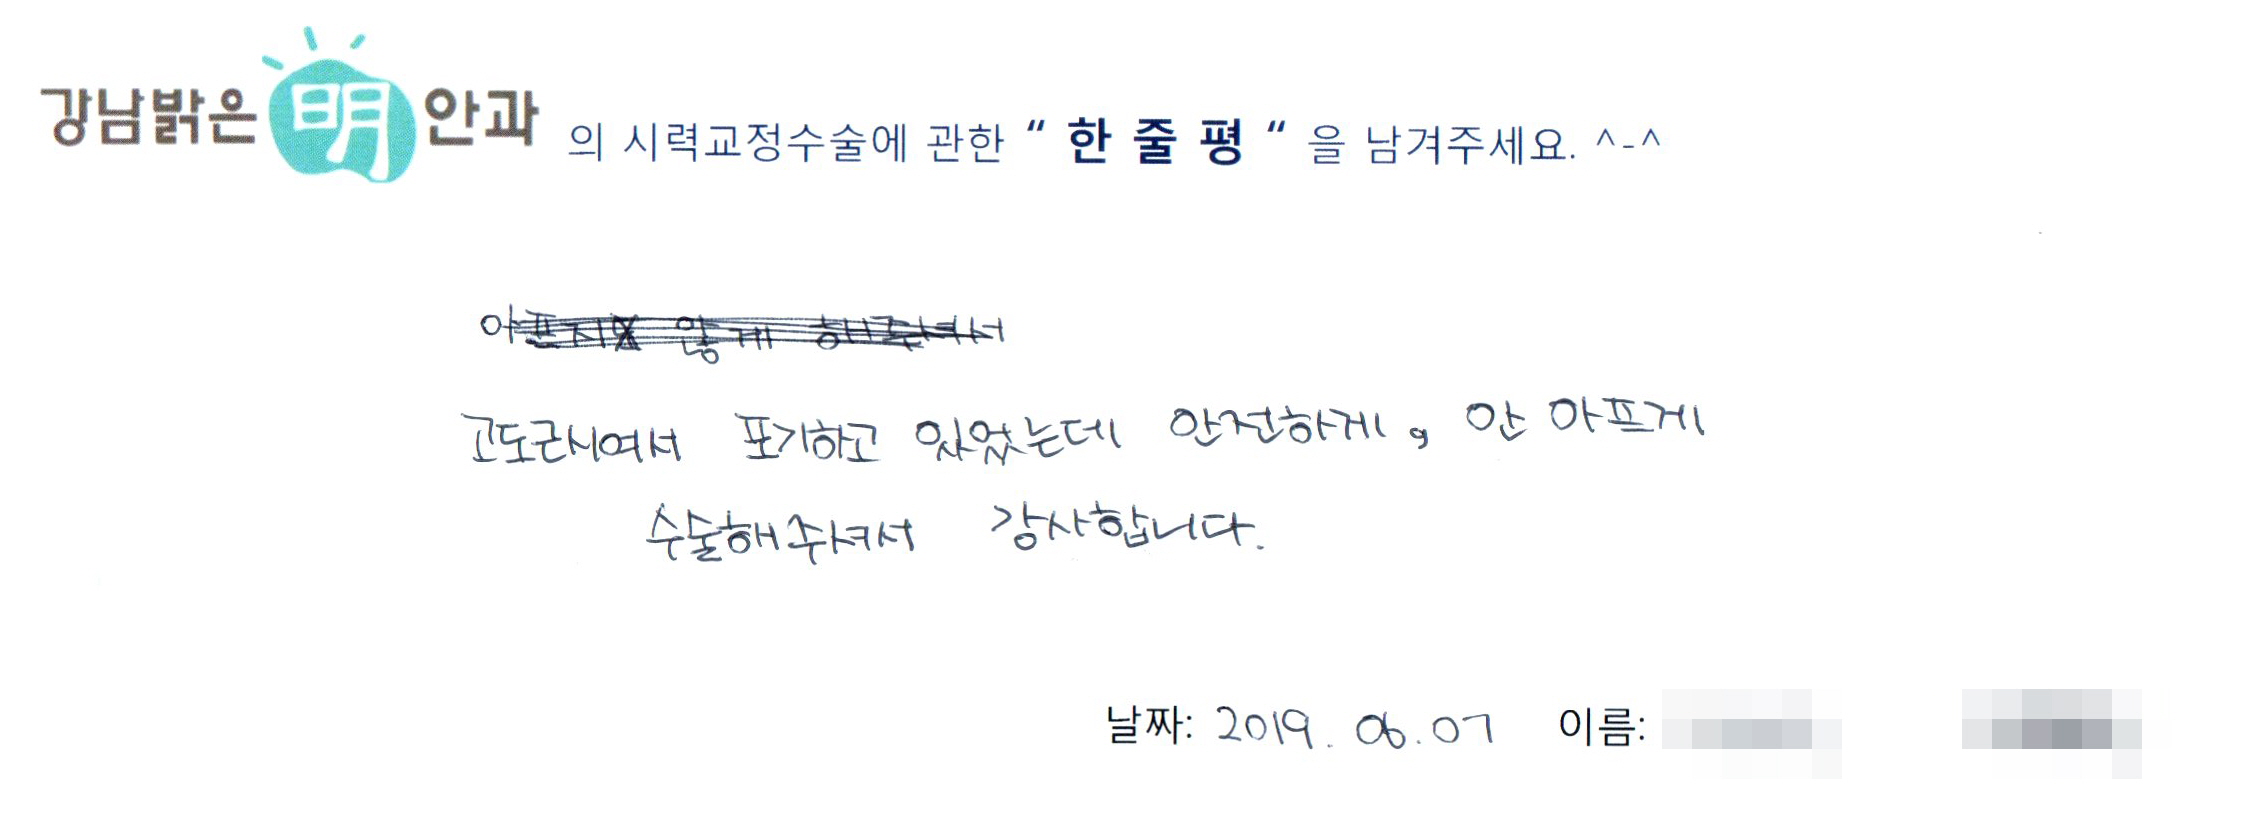 강남밝은明안과 의 시력교정수술에 관한 “ 한 줄 평 “ 을 남겨주세요. ^-^
고도근시여서 포기하고 있었는데 안전하게, 안 아프게
수술해주셔서 감사합니다.
날짜: 2019. 06. 07 이름: